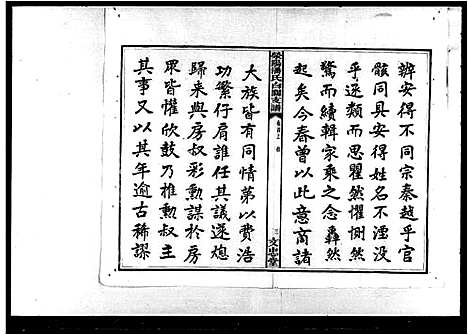 辨安得不同宗秦越乎官
骸同具安得姓名不湮没
乎逐類而思瞿然懼惻然
驚而續輯家乘之念轟然
起矣今春曾以此意商諸
滎陽潘氏白關支譜
三 文忠堂
大族皆有同情第以費浩
功繁仔肩誰任其議遂炮
歸來與房叔彩勲謀於房
眾皆懽欣鼓乃推勲叔主
其事又以其年逾古稀謬